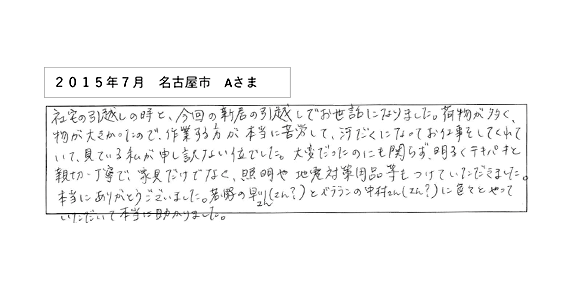 2015年7月　名古屋市　Aさま
社宅の引越しの時と、今回の新居の引越しでお世話になりました。荷物が多く、
物が大きかったので、作業する方が本当に苦労して、汗だくになってお仕事をしてくれて
いて、見ている私が申し訳ない位でした。大変だったのにも関らず、明るくテキパキと
親切・丁寧で、家具だけでなく、照明や地震対策用品等もつけていただきました。
本当にありがとうございました。若い の早川さん(さん?)とベテランの中村さん(さん?)に色々とやって
いただいて本当に助かりました。